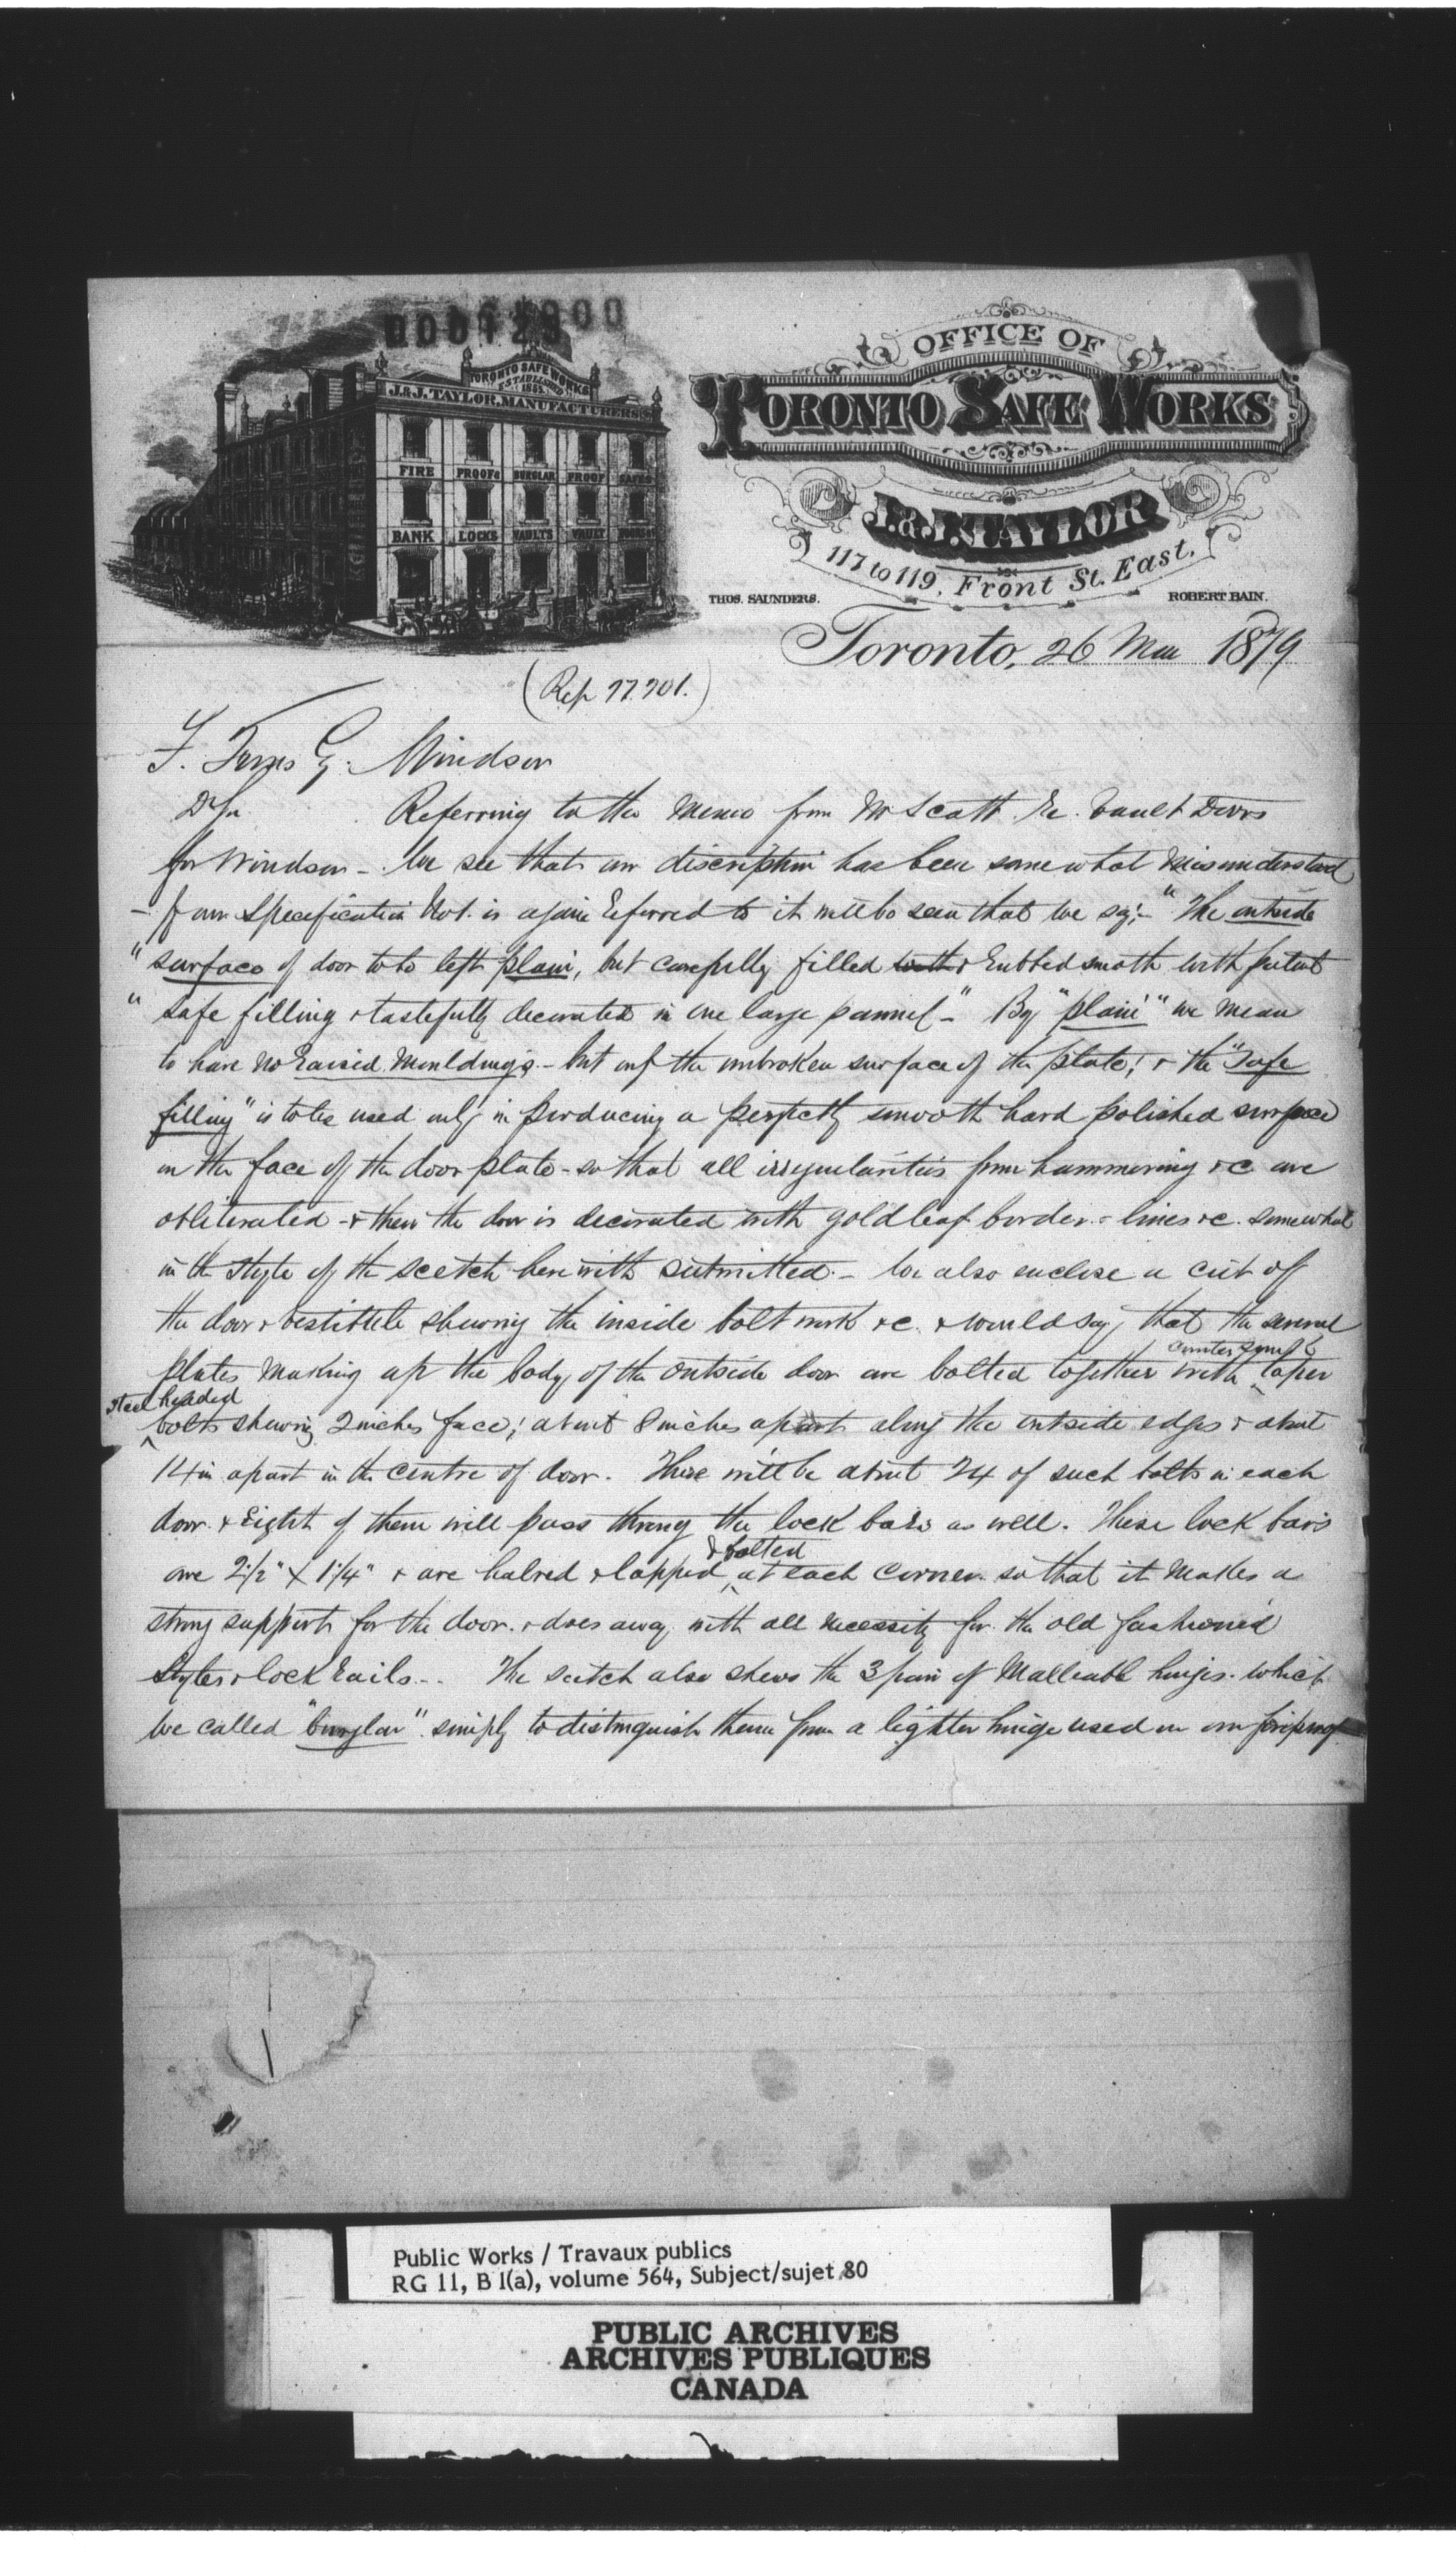 TORONTO SAFE WORKS
ESTABLISHED 1855
J. & J. TAYLOR, MANUFACTURERS
FIRE PROOF & BURGLAR PROOF SAFES
BANK LOCKS VAULTS VAULT DOORS
OFFICE OF
TORONTO SAFE WORKS
J. & J. TAYLOR
117 to 119, Front St. East.
THOS. SAUNDERS. ROBERT BAIN.
Toronto, 26 Mar 1879
(Rep 77.701.)
F. Windsor
D Sir Referring to the Memo from Mr Scott re. Vault Doors
for Windsor - We see that our discription has been somewhat misunderstood
- If our Specification No 1. is again referred to it will be seen that we say:- "The outside
" surface of door to be left plain, but carefully filled & rubbed smooth with patent
" safe filling & tastefully decorated in one large pannel - " By "plain" we mean
to have no raised mouldings - but only the unbroken surface of the plate; & the "Safe
filling" is to be used only in producing a perfectly smooth hard polished surface
on the face of the door plate - so that all irregularities from hammering &c are
obliterated - & then the door is decorated with gold leaf border & lines &c. somewhat
in the style of the scetch herewith submitted. - We also enclose a cut of
the door & vestibule shewing the inside bolt work &c. & would say that the several
plates making up the body of the outside door are bolted together with countersunk taper
steel headed bolts shewing 2 inches face; about 8 inches apart along the outside edges & about
14 in apart in the centre of door. There will be about 24 of such bolts in each
door & Eight of them will pass throug the lock bars as well. These lock bars
are 2 1/2" X 1 1/4" & are halved & lapped & bolted at each corner so that it makes a
strong support for the door. & does away with all necessity for the old fashioned
Styles & lock rails. - The scetch also shews the 3 pair of Malleable hinges. which
we called "burglar" simply to distinguish them from a lighter hinge used on our fireproof
Public Works / Travaux publics
RG 11, B 1(a), volume 564, Subject/sujet 80
PUBLIC ARCHIVES
ARCHIVES PUBLIQUES
CANADA